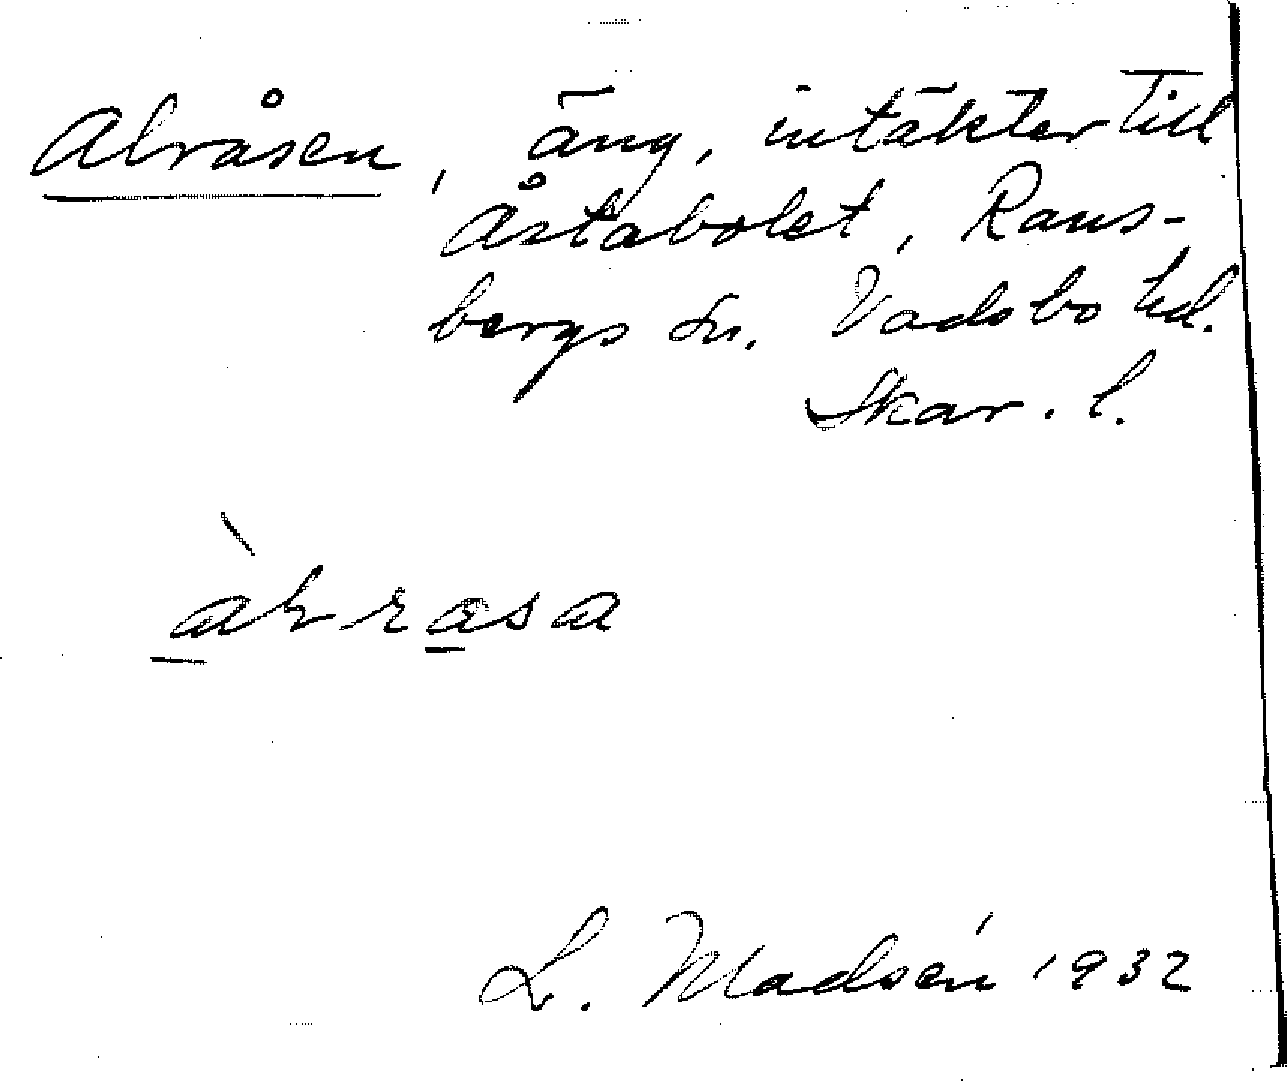 Alråsen, äng, intäkter till
Åstabolet, Rans-
bergs sn. Vadsbo hd.
Skar. l.
àɫrasa
L. Madsén 1932